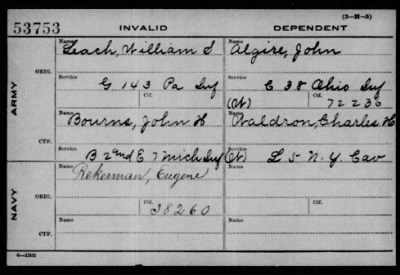 (3-M-5)
53753 INVALID DEPENDENT
Name Name
Leach, William S Algire, John
ARMY ORIG. Service Ctf. Service Ctf.
G 143 Pa Inf C 38 Ohio Inf
(W) 72236
Name Name
Bourne, John H Waldron, Charles H
CTF. Service Service
B 2nd E 7 Mich Inf (W) L 5 N. Y. Cav
NAVY ORIG. Name Name
Rekerman, Eugene
Ctf. Ctf.
38260
CTF. Name Name
6-1302